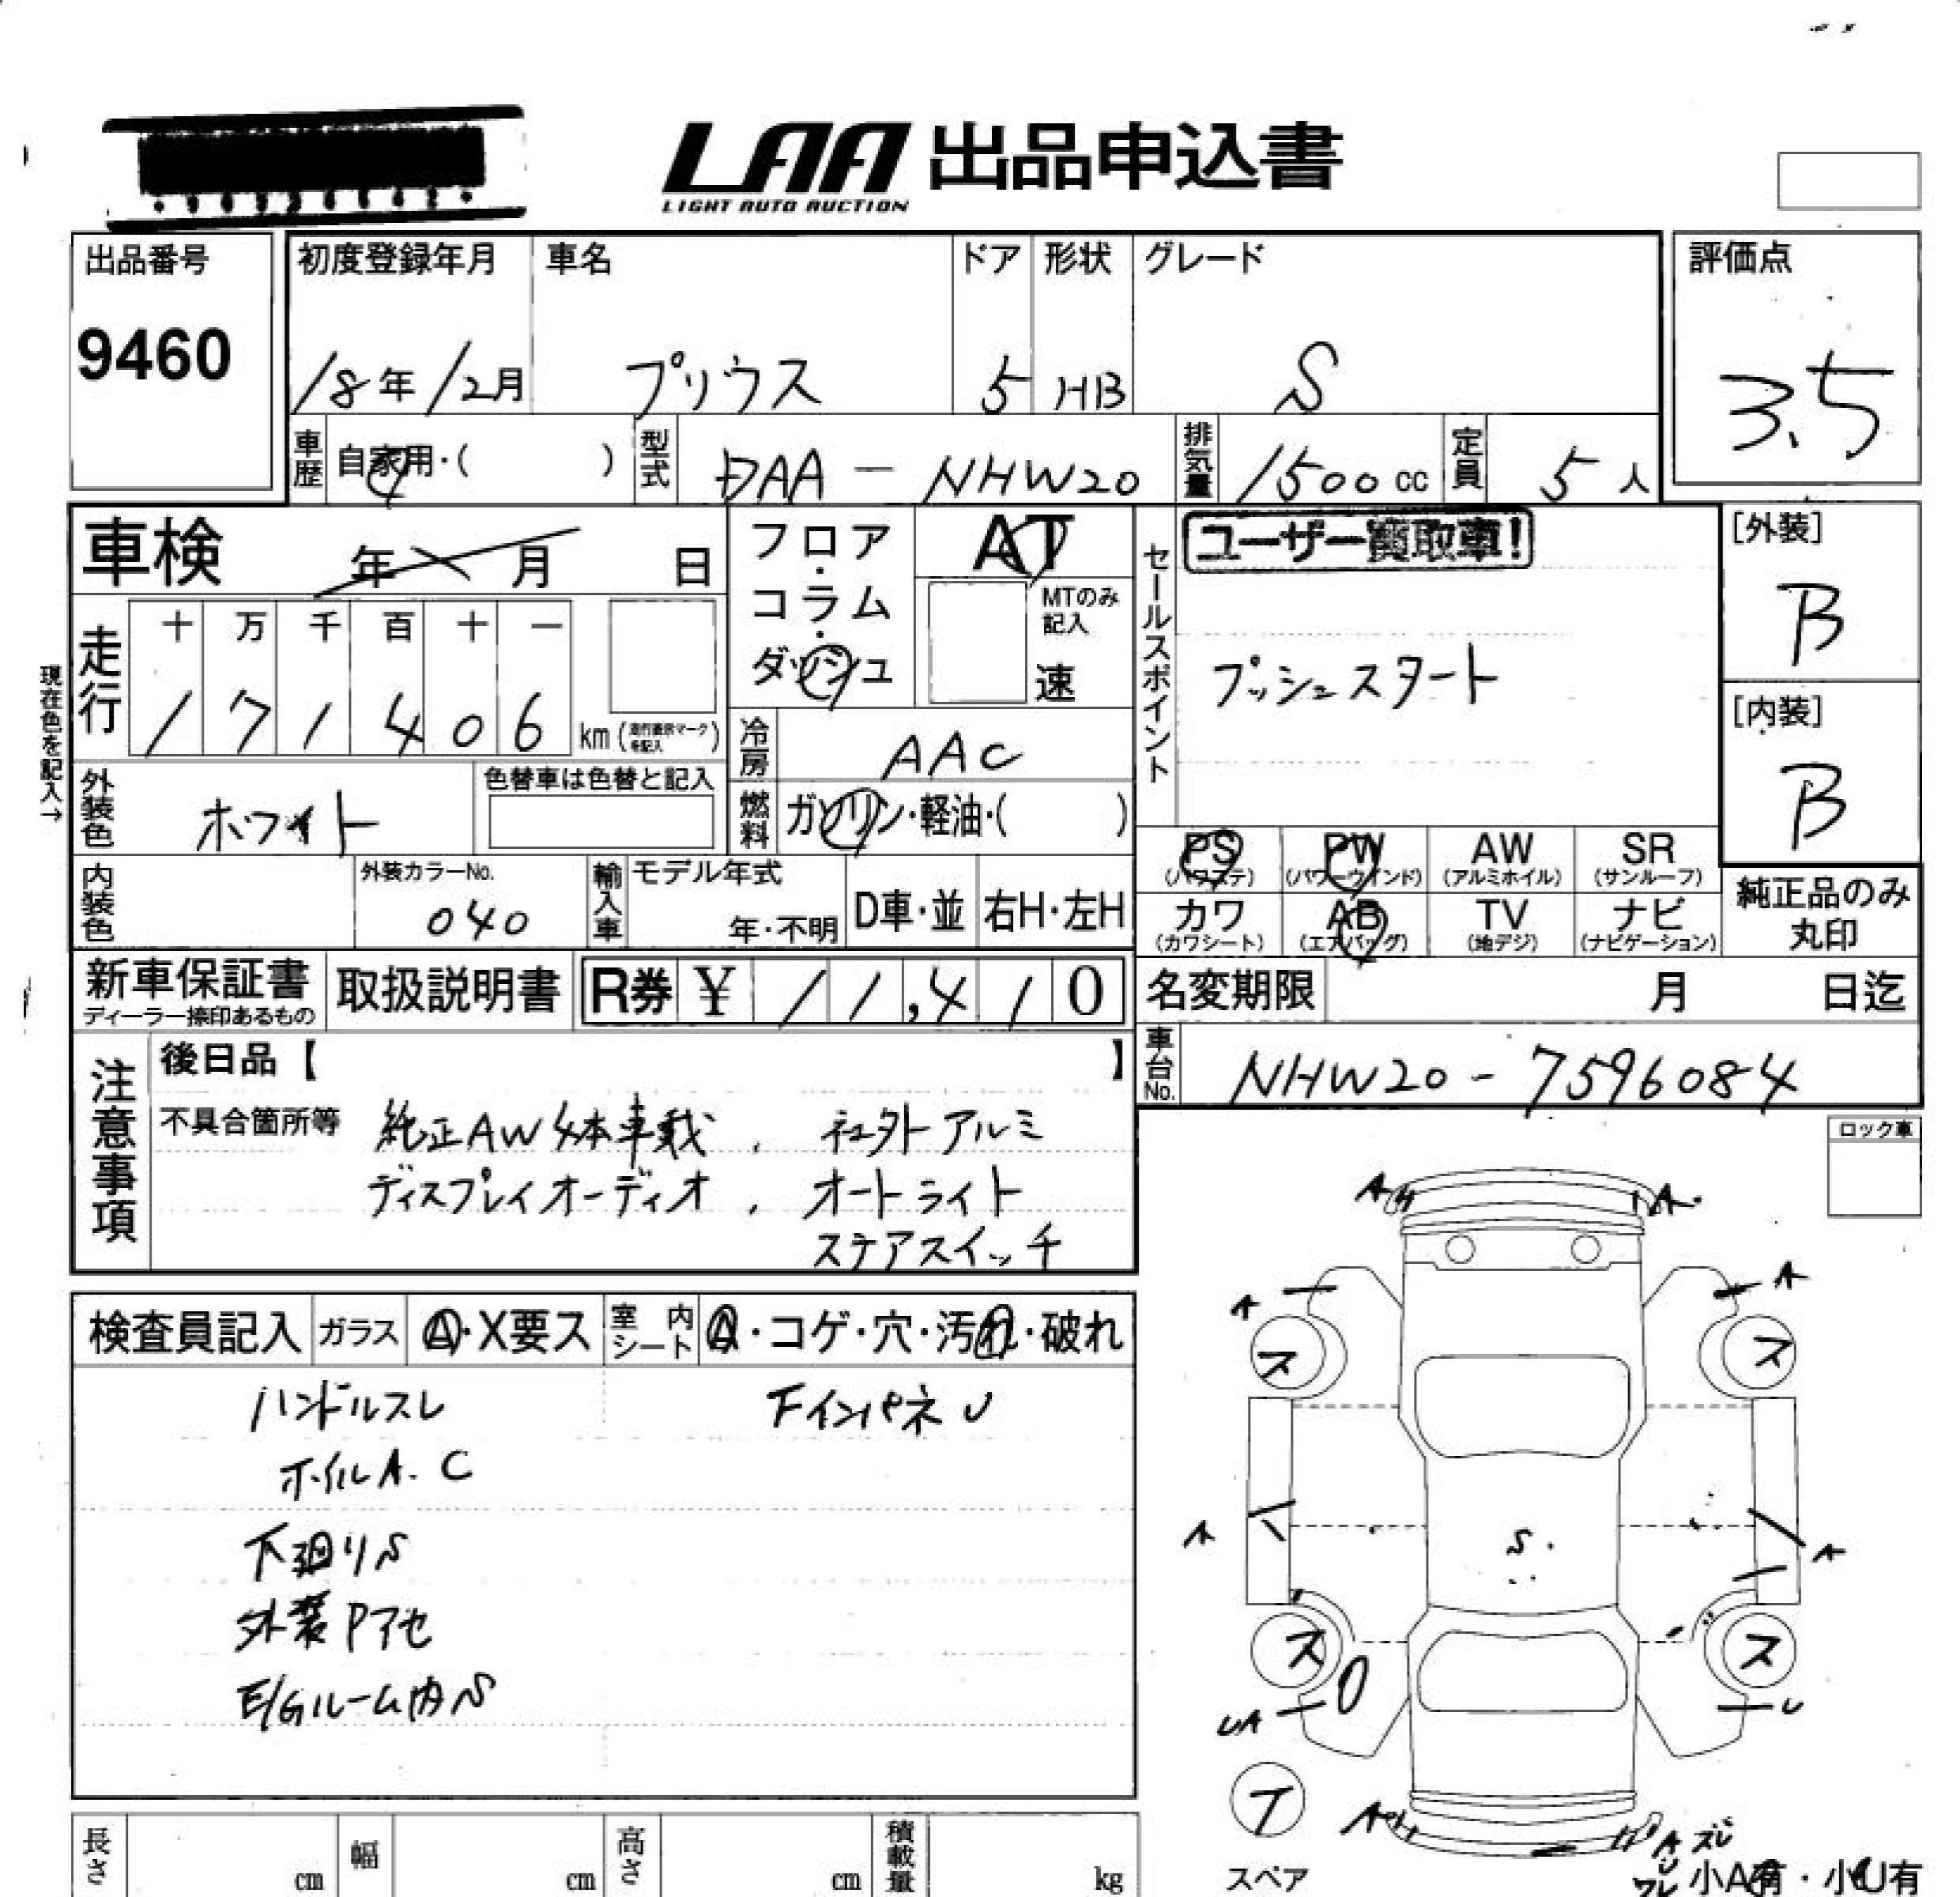 LAA 出品申込書
LIGHT AUTO AUCTION
出品番号
9460
初度登録年月
18年12月
車名
プリウス
ドア
5
形状
HB
グレード
S
評価点
3.5
車歴
自家用・( )
型式
DAA-NHW20
排気量
1500cc
定員
5人
車検 年 月 日
走行
十 万 千 百 十 一
1 7 1 4 0 6 km(
を記入)
現在色を記入→
フロア・コラム・ダッシュ
AT
MTのみ記入
速
冷房
AAC
燃料
ガソリン・軽油・( )
セールスポイント
ユーザー買取車!
プッシュスタート
[外装]
B
[内装]
B
外装色
ホワイト
色替車は色替と記入
内装色
外装カラーNo.
040
輸入車
モデル年式
年・不明
D車・並
右H・左H
PS
(パワステ)
PW
(パワーウインド)
AW
(アルミホイル)
SR
(サンルーフ)
カワ
(カワシート)
AB
(エアバッグ)
TV
(地デジ)
ナビ
(ナビゲーション)
純正品のみ
丸印
新車保証書
ディーラー捺印あるもの
取扱説明書
R券 ¥ 11,410
名変期限 月 日迄
車台No.
NHW20-7596084
注意事項
後日品【 】
不具合箇所等
純正AW4本車載、社外アルミ
ディスプレイオーディオ、オートライト
ステアスイッチ
ロック車
検査員記入
ガラス
A・X要ス
室内シート
A・コゲ・穴・汚れ・破れ
ハンドルスレ
下インパネU
ホイルA.C
下廻りS
外装Pアセ
E/Gルーム内S
A
A
A
A
ス
ス
A
S
A
ス
ス
UA
U
T
スペア
A
A
ズレ
U
ワレ
小A有・小U有
長さ cm
幅 cm
高さ cm
積載量 kg